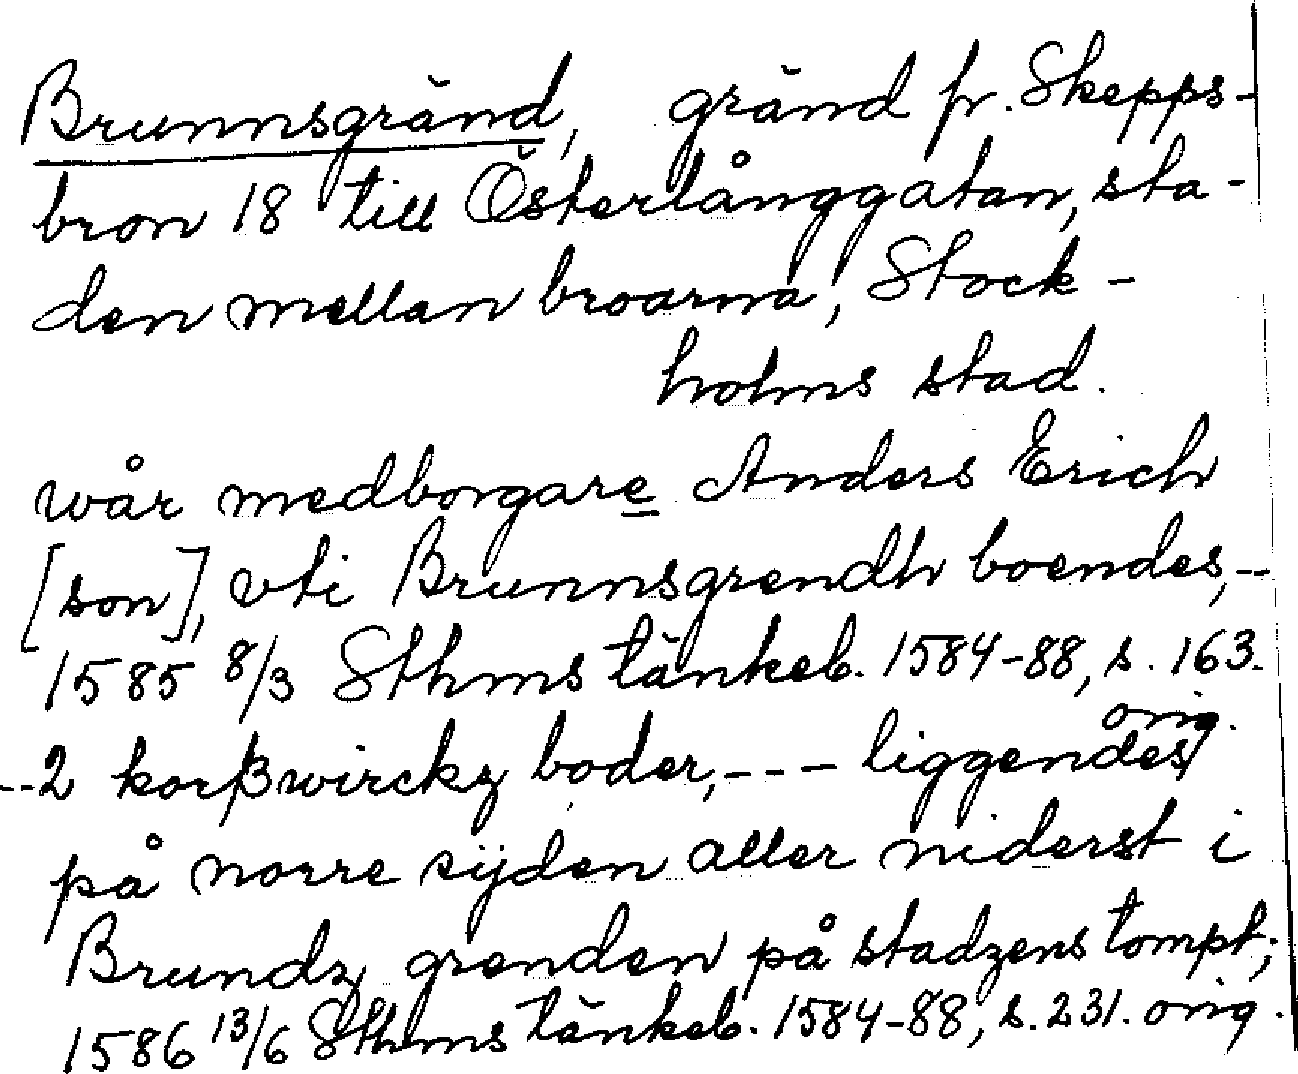 Brunnsgränd, gränd fr. Skepps-
bron 18 till Österlånggatan, sta-
den mellan broarna, Stock-
holms stad.
wår medborgare Anders Erich
[son], vti Brunnsgrendh boendes,--
1585 8/3 Sthms tänkeb. 1584-88, s. 163.
orig.
--2 korßwirckz boder,--- liggendes
på norre sijden aller niderst i
Brundz grenden på stadzens tompt;
1586 13/6 Sthms tänkeb. 1584-88, s. 231. orig.